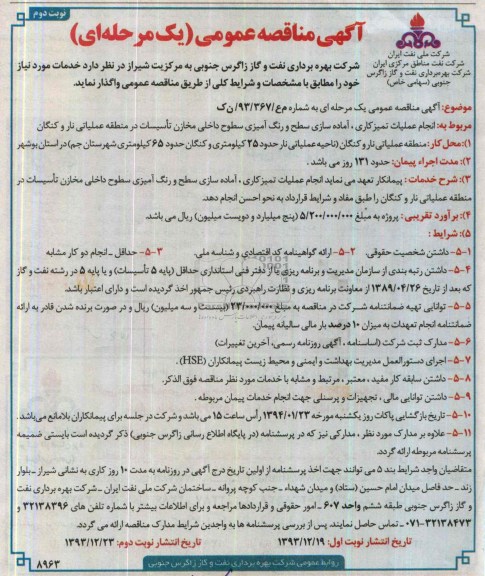 نوبت دوم
آگهی مناقصه عمومی (یک مرحله‌ای)
شرکت ملی نفت ایران
شرکت نفت مناطق مرکزی ایران
شرکت بهره‌برداری نفت و گاز زاگرس
جنوبی (سهامی خاص)
شرکت بهره برداری نفت و گاز زاگرس جنوبی به مرکزیت شیراز در نظر دارد خدمات مورد نیاز
خود را مطابق با مشخصات و شرایط کلی از طریق مناقصه عمومی واگذار نماید.
موضوع: آگهی مناقصه عمومی یک مرحله ای به شماره م ع/۹۳/۳۶۷/ن ک
مربوط به: انجام عملیات تمیزکاری ، آماده سازی سطح و رنگ آمیزی سطوح داخلی مخازن تأسیسات در منطقه عملیاتی نار و کنگان
۱): محل کار: منطقه عملیاتی نار و کنگان (ناحیه عملیاتی نار حدود ۲۵ کیلومتری و کنگان حدود ۶۵ کیلومتری شهرستان جم) در استان بوشهر
۲): مدت اجراء پیمان: حدود ۱۳۱ روز می باشد .
۳): شرح خدمات : پیمانکار تعهد می نماید انجام عملیات تمیزکاری ، آماده سازی سطح و رنگ آمیزی سطوح داخلی مخازن تأسیسات در
منطقه عملیاتی نار و کنگان را طبق مفاد و شرایط قرارداد به نحو احسن انجام دهد.
۴): برآورد تقریبی : پروژه به مبلغ ۵/۲۰۰/۰۰۰/۰۰۰ (پنج میلیارد و دویست میلیون) ریال می باشد.
۵): شرایط :
۵-۱- داشتن شخصیت حقوقی. ۵-۲- ارائه گواهینامه کد اقتصادی و شناسه ملی. ۵-۳- حداقل ـ انجام دو کار مشابه
۵-۴- داشتن رتبه بندی از سازمان مدیریت و برنامه ریزی یا از دفتر فنی استانداری حداقل (پایه ۵ تأسیسات) و یا پایه ۵ در رشته نفت و گاز
که بعد از تاریخ ۱۳۸۹/۰۴/۲۶ از معاونت برنامه ریزی و نظارت راهبردی رئیس جمهور اخذ گردیده است و دارای اعتبار باشد.
۵-۵- توانایی تهیه ضمانتنامه شـرکت در مناقصه به مبلغ ۲۳/۰۰۰/۰۰۰ (بیست و سه میلیون) ریال و در صورت برنده شدن قادر به ارائه
ضمانتنامه انجام تعهدات به میزان ۱۰ درصد بار مالی سالیانه پیمان.
۵-۶- مدارک ثبت شرکت (اساسنامه ، آگهی روزنامه رسمی، آخرین تغییرات)
۵-۷- اجرای دستورالعمل مدیریت بهداشت و ایمنی و محیط زیست پیمانکاران (HSE) .
۵-۸- داشتن سابقه کار مفید ، معتبر ، مرتبط و مشابه با خدمات مورد نظر مناقصه فوق الذکر.
۵-۹- داشتن توانایی مالی ، تجهیزات و پرسنلی جهت انجام خدمات پیمان مربوطه .
۵-۱۰- تاریخ بازگشایی پاکات روز یکشنبه مورخه ۱۳۹۴/۰۱/۲۳ رأس ساعت ۱۵ می باشد و شرکت در جلسه برای پیمانکاران بلامانع می‌باشد.
۵-۱۱- علاوه بر مدارک مورد نظر ، مدارکی نیز که در پرسشنامه (در پایگاه اطلاع رسانی زاگرس جنوبی) ذکر گردیده است بایستی ضمیمه
پرسشنامه مربوطه ارائه گردد.
متقاضیان واجد شرایط بند ۵ می توانند جهت اخذ پرسشنامه از اولین تاریخ درج آگهی در روزنامه به مدت ۱۰ روز کاری به نشانی شیراز ـ بلوار
زند ـ حد فاصل میدان امام حسین (ستاد) و میدان شهداء ـ جنب کوچه پروانه ـ ساختمان شرکت ملی نفت ایران ـ شرکت بهره برداری نفت
و گاز زاگرس جنوبی طبقه ششم واحد ۶۰۷ ـ امور حقوقی و قراردادها مراجعه و برای اطلاعات بیشتر با شماره تلفن های ۳۲۱۳۸۳۹۶ و
۳۲۱۳۸۴۷۳-۰۷۱ ـ تماس حاصل نمایند. پس از بررسی پرسشنامه ها به واجدین شرایط مدارک مناقصه ارائه می گردد.
تاریخ انتشار نوبت اول: ۱۳۹۳/۱۲/۱۹ تاریخ انتشار نوبت دوم: ۱۳۹۳/۱۲/۲۳
روابط عمومی شرکت بهره برداری نفت و گاز زاگرس جنوبی
۸۹۶۳